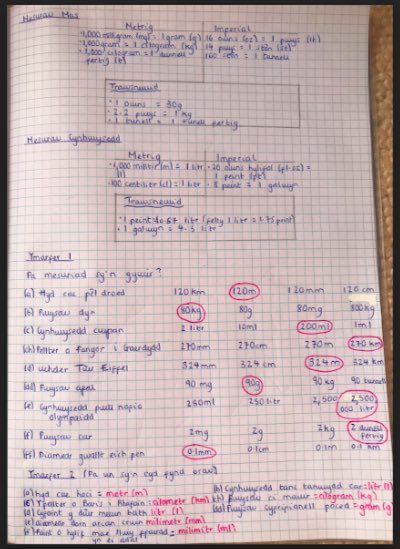 Mesurau Mas
Metrig Imperial
1,000 miligram (mg) = 1 gram (g) 16 owns (oz) = 1 pwys (lb)
1,000 gram = 1 cilogram (kg) 14 pwys = 1 stôn (st)
1,000 cilogram = 1 dunnell 160 stôn = 1 tunnell
fetrig (t)
Trawsnewid
1 owns = 30g
2.2 pwys = 1 kg
1 tunell = 1 tunell fetrig
Mesurau Cynhwysedd
Metrig Imperial
1,000 mililitr (ml) = 1 litr 20 owns hylifol (fl.oz) =
(l) 1 peint (pt)
100 centilitr (cl) = 1 litr 8 peint = 1 galwyn
Trawsnewid
1 peint = 0.57 litr (felly 1 litr = 1.75 peint)
1 galwyn = 4.5 litr
Ymarfer 1
Pa mesuriad sy'n gywir?
(a) Hyd cae pêl droed 120 km 120m 120mm 120 cm
(b) Pwysau dyn 80kg 80g 80mg 800kg
(c) Cynhwysedd cwpan 2 litr 10ml 200ml 1ml
(ch) Pellter o Fangor i Gaerdydd 270mm 270cm 270m 270 km
(d) Uchder Tŵr Eiffel 324mm 324 cm 324m 324 km
(dd) Pwysau afal 90 mg 90g 90 kg 90 tunell
(e) Cynhwysedd pwll nofio 250ml 250 litr 2,500 2,500
olympaidd 000 litr
(f) Pwysau car 2mg 2g 2kg 2 dunnell
fetrig
(ff) Diamedr gwallt eich pen 0.1mm 0.1cm 0.1m 0.1 km
Ymarfer 2 (Pa un sy'n cyd fynd orau)
(a) hyd cae hoci = metr (m)
(b) Cynhwysedd tanc tanwydd car = litr (l)
(c) Pellter o Baris i Rufain = cilometr (km)
(ch) Pwysau ci mawr = cilogram (kg)
(d) Cyfaint y dŵr mewn bath = litr (l)
(dd) Pwysau
(e) diamedr darn arian crwn = milimetr (mm)
= milimetr (mm)